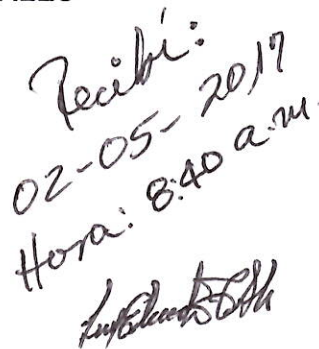 Recibí:
02-05-2017
Hora: 8:40 a.m.